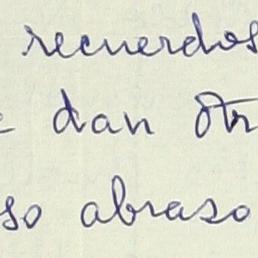 recuerdos
dan otr
so abraso